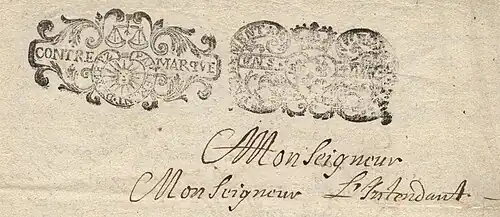 CONTRE MARQVE
Monseigneur
Monseigneur L'Intendant